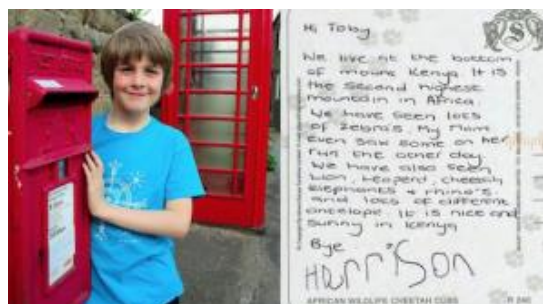 Hi Toby
We live at the bottom
of mount Kenya It is
the second highest
mountain in Africa
We have seen lots
of zebra's. My Mom
even saw some on her
run the other day
We have also seen
Lion, Leopard, cheetah
elephants + rhino's
and lots of different
antelope It is nice and
sunny in Kenya
Bye
HarrisOn
AFRICAN WILDLIFE CHEETAH CUBS
S